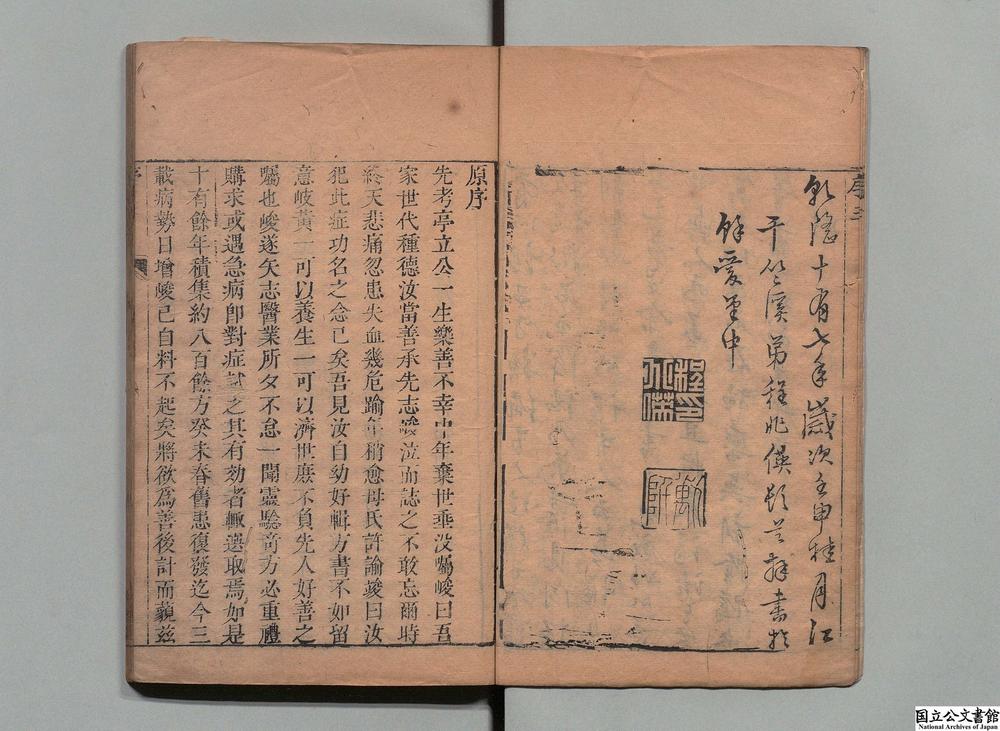 乾隆十有七年歲次壬申桂月江
干竺溪弟程兆傑頓首拜書於
餘愛堂中
原序
先考亭立公一生樂善不幸中年棄世垂没囑峻曰吾
家世代種德汝當善承先志峻泣而誌之不敢忘爾時
終天悲痛忽患失血幾危踰年稍愈母氏許諭峻曰汝
犯此症功名之念已矣吾見汝自幼好輯方書不如留
意岐黃一可以養生一可以濟世庶不負先人好善之
囑也峻遂矢志醫業朝夕不怠一聞靈驗奇方必重禮
購求或遇急病卽對症試之其有効者輒選取焉如是
十有餘年積集約八百餘方癸未春舊患復發迄今三
載病勢日增峻已自料不起矣將欲爲善後計而藐兹
国立公文書館
National Archives of Japan